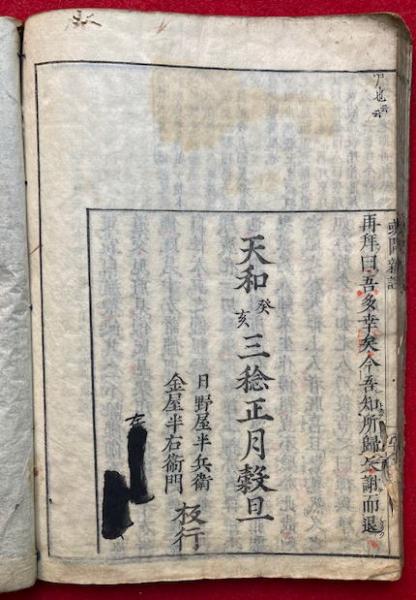 再拜曰吾多幸矣今吾知所歸矣謝而退
天和癸亥三稔正月穀旦
日野屋半兵衛
金屋半右衛門
板行